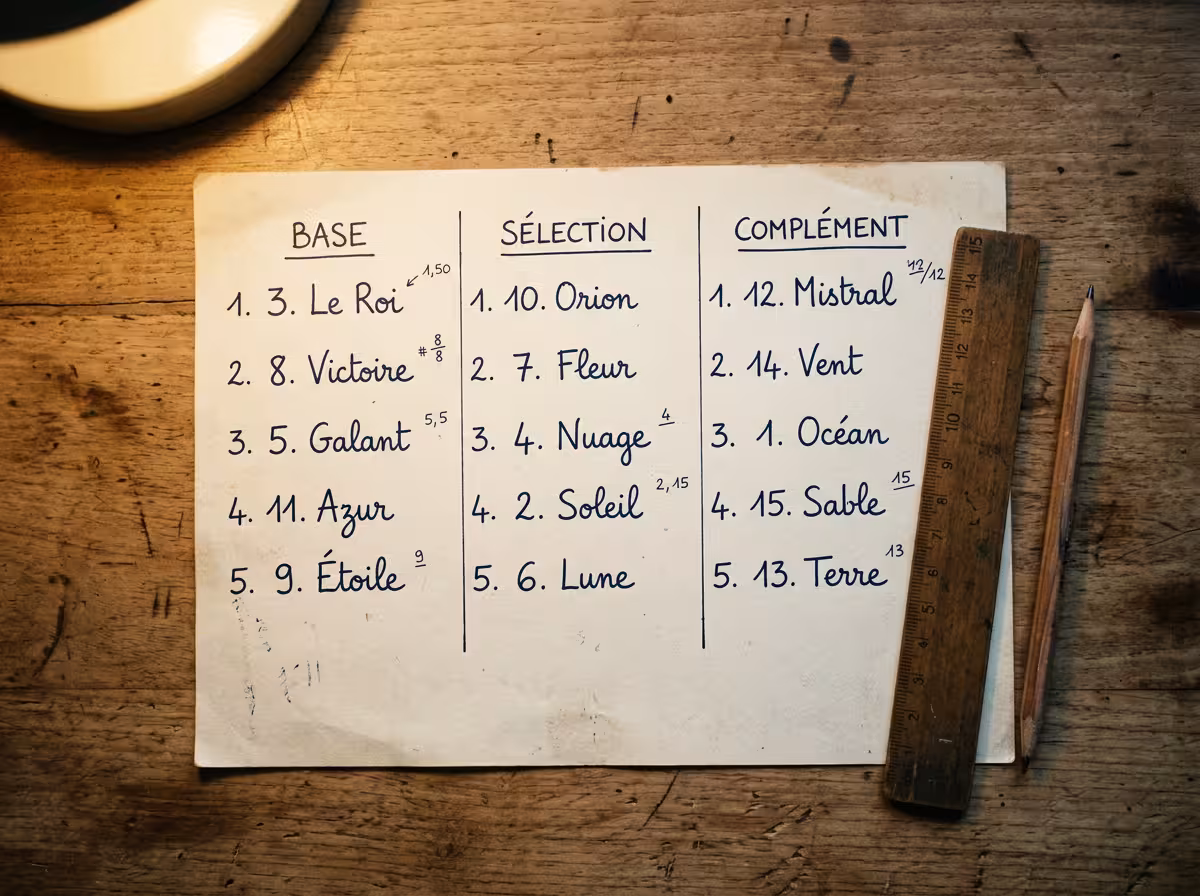 BASE
1. 3. Le Roi 1,50
2. 8. Victoire # 8/8
3. 5. Galant 5,5
4. 11. Azur
5. 9. Étoile 9
SÉLECTION
1. 10. Orion
2. 7. Fleur
3. 4. Nuage 4
4. 2. Soleil 2,15
5. 6. Lune
COMPLÉMENT
1. 12. Mistral 12/12
2. 14. Vent
3. 1. Océan
4. 15. Sable 15
5. 13. Terre 13
15
14
13
12
11
10
9
8
7
6
5
4
3
2